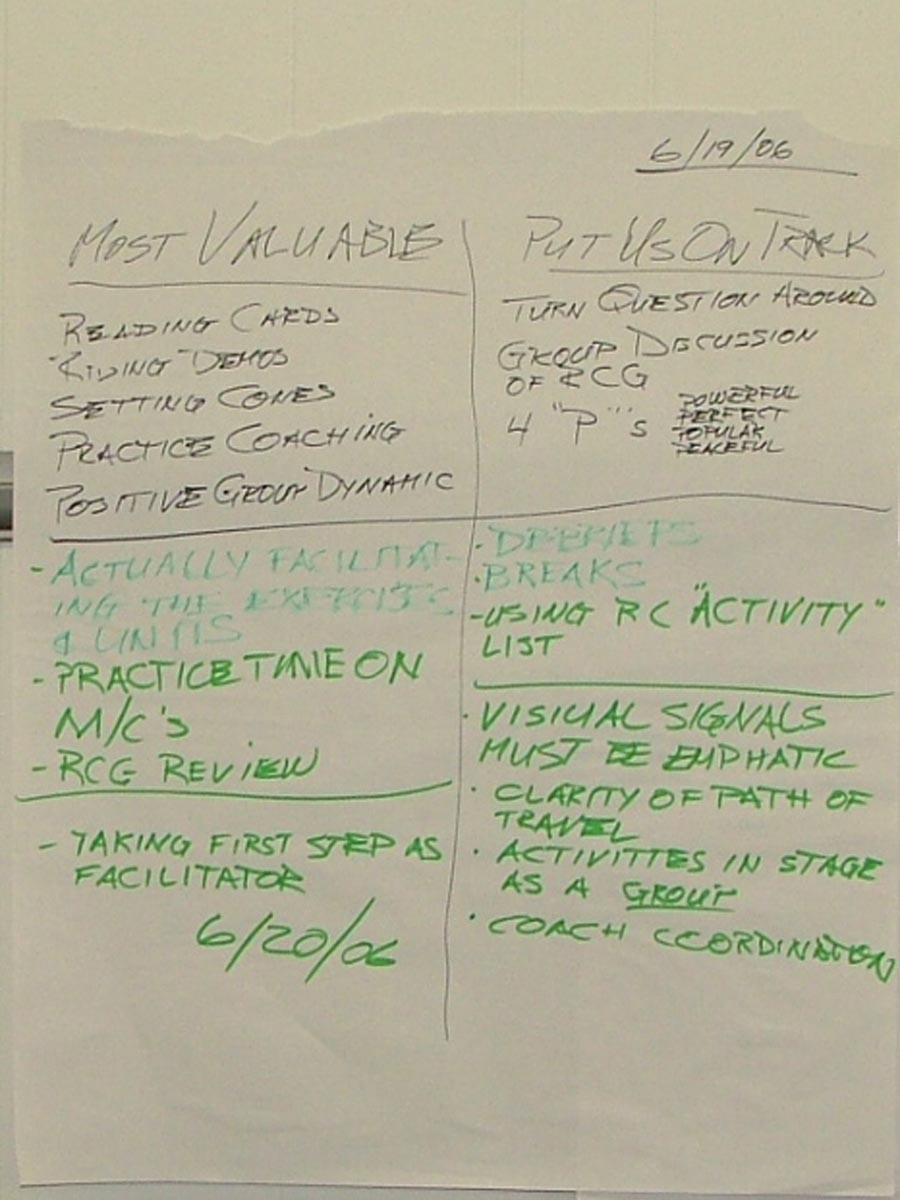 6/19/06
MOST VALUABLE
READING CARDS
"RIDING" DEMOS
SETTING CONES
PRACTICE COACHING
POSITIVE GROUP DYNAMIC
- ACTUALLY FACILITAT-
ING THE EXERCISES
& UNITS
- PRACTICE TIME ON
M/C'S
- RCG REVIEW
- TAKING FIRST STEP AS
FACILITATOR
6/20/06
PUT US ON TRACK
TURN QUESTION AROUND
GROUP DISCUSSION
OF RCG
4 "P"'s
POWERFUL
PERFECT
POPULAR
PEACEFUL
· DEBRIEFS
· BREAKS
- USING RC "ACTIVITY"
LIST
· VISUAL SIGNALS
MUST BE EMPHATIC
· CLARITY OF PATH OF
TRAVEL
· ACTIVITIES IN STAGE
AS A GROUP
· COACH COORDINATION